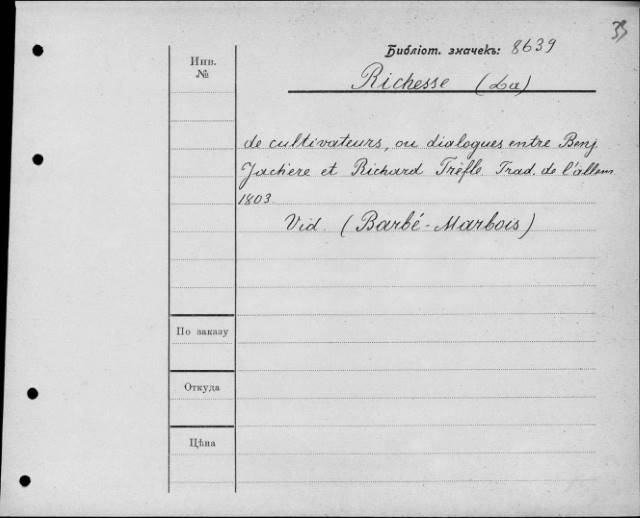 33
Библіот. значекъ: 8639
Инв.
№
Richesse (La)
de cultivateurs, ou dialogues entre Benj.
Jachère et Richard Trèfle. Trad. de l'allem.
1803
Vid. (Barbé-Marbois)
По заказу
Откуда
Цѣна